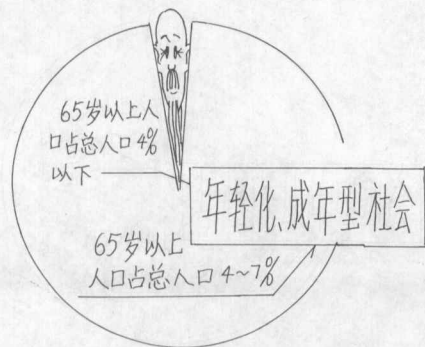 65岁以上人
口占总人口4%
以下
年轻化、成年型社会
65岁以上
人口占总人口4~7%